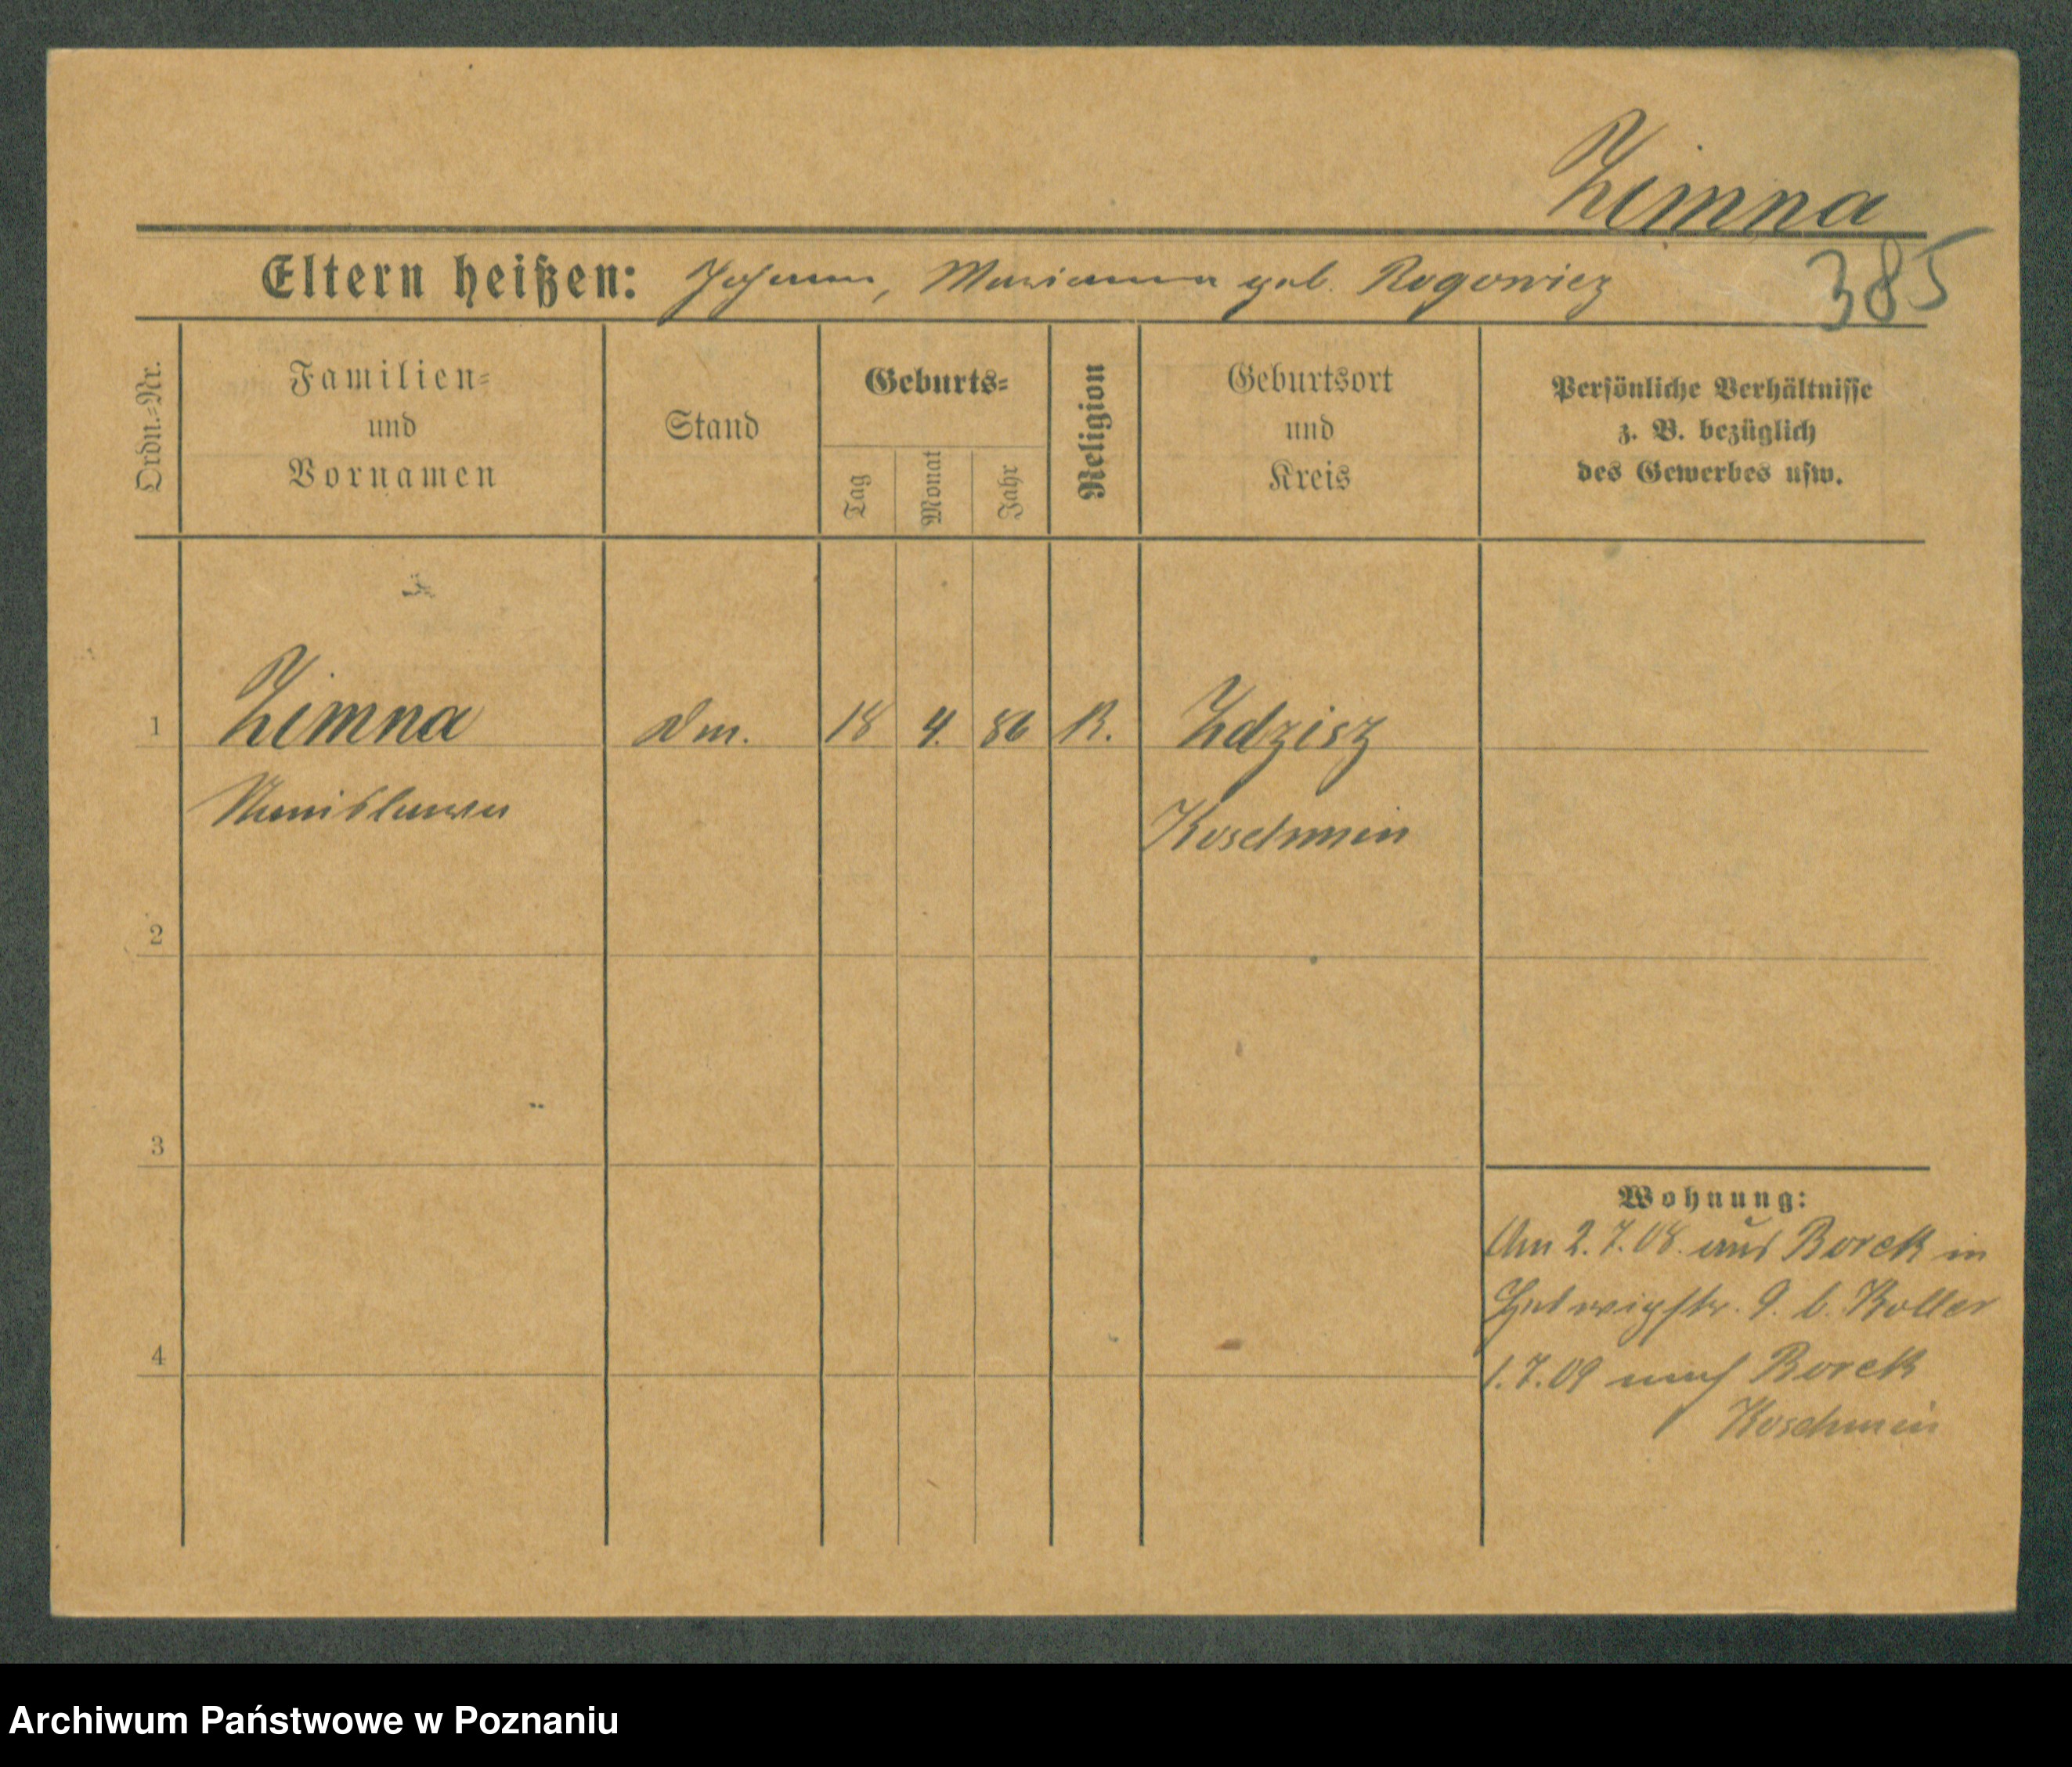 Zimna
Eltern heißen: Johann, Marianna geb. Rogowicz
385
Ordn.=Nr.
Familien=
und
Vornamen
Stand
Geburts=
Tag
Monat
Jahr
Religion
Geburtsort
und
Kreis
Persönliche Verhältnisse
z. B. bezüglich
des Gewerbes usw.
1
Zimna
Dm.
18
4.
86
K.
Zdzisz
Stanislawa
Koschmin
2
3
4
Wohnung:
Am 2.7.08. aus Borek in
Hedwigstr. 9. b. Koller
1.7.09 nach Borek
Koschmin
Archiwum Państwowe w Poznaniu